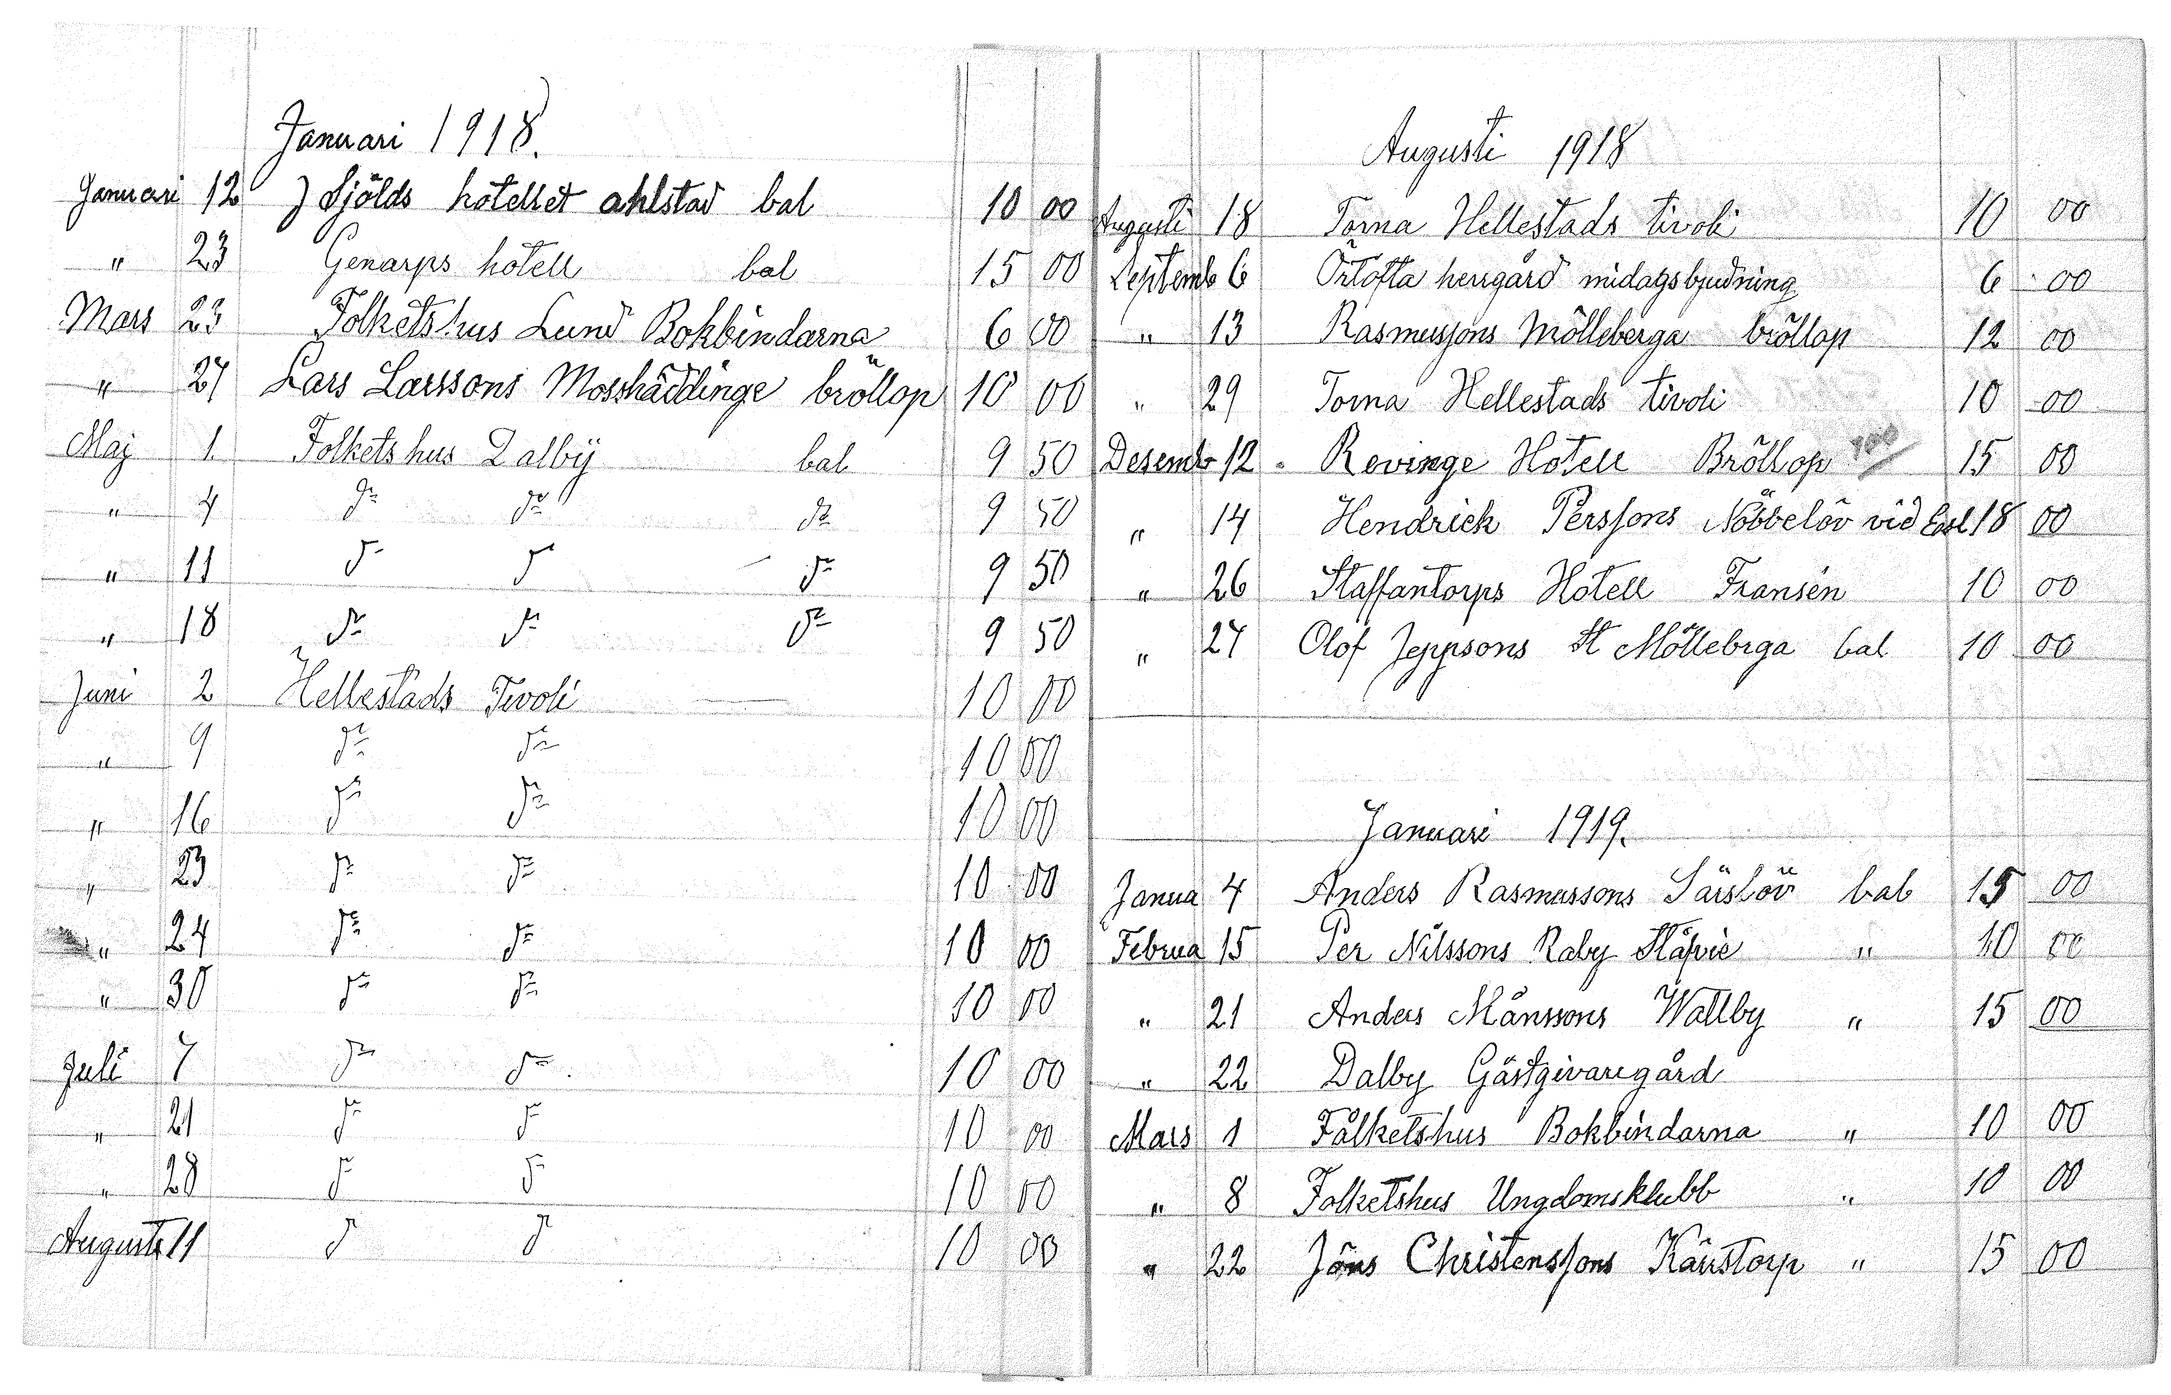 Januari 1918.
Januari 12 J Sjölds hotellet ahlstad bal 10 00
" 23 Genarps hotell bal 15 00
Mars 23 Folketshus Lund Bokbindarna 6 00
" 27 Lars Larssons Mosshäddinge bröllop 10 00
Maj 1 Folketshus Dalby bal 9 50
" 4 do do do 9 50
" 11 do do do 9 50
" 18 do do do 9 50
Juni 2 Hellestads Tivoli 10 00
" 9 do do 10 00
" 16 do do 10 00
" 23 do do 10 00
" 24 do do 10 00
" 30 do do 10 00
Juli 7 do do 10 00
" 21 do do 10 00
" 28 do do 10 00
Augusti 11 do do 10 00
Augusti 1918
Augusti 18 Torna Hellestads tivoli 10 00
Septemb 6 Örtofta herrgård midagsbjudning 6 00
" 13 Rasmussons Mölleberga bröllop 12 00
" 29 Torna Hellestads tivoli 10 00
Desemb 12 Revinge Hotell Bröllop 15 00
" 14 Hendrick Perssons Nöbbelöv vid Esl 18 00
" 26 Staffantorps Hotell Fransén 10 00
" 27 Olof Jeppsons St Möllebrga bal 10 00
Januari 1919.
Janua 4 Anders Rasmussons Särslöv bal 15 00
Februa 15 Per Nilssons Raby Stäpie " 10 00
" 21 Anders Månssons Wallby " 15 00
" 22 Dalby Gästgivaregård
Mars 1 Fålketshus Bokbindarna " 10 00
" 8 Folketshus Ungdomsklubb " 10 00
" 22 Jöns Christenssons Kärrstorp " 15 00